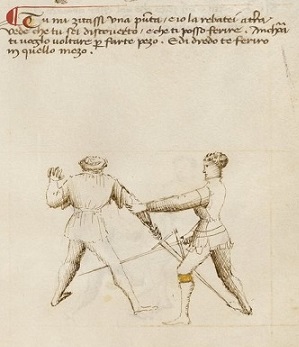 Tu mi zitassi una pūta / e io la rebatei a tr̄a.
Vede che tu sei discoverto / e che ti posso ferire. Anchā
ti voglio voltare ꝑ farte pezo. E di dredo te feriro
in quello mezo.